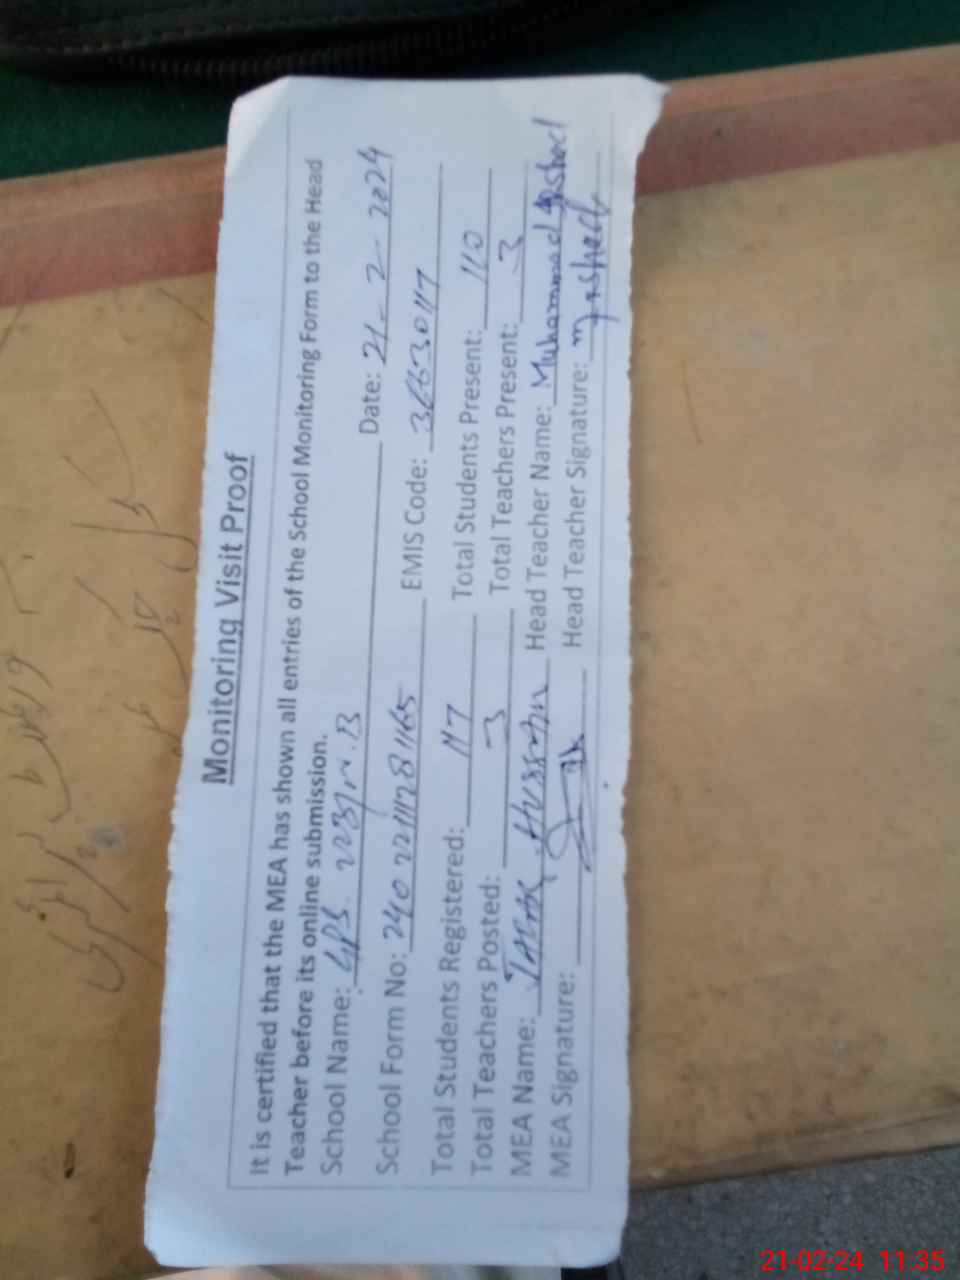 Monitoring Visit Proof
It is certified that the MEA has shown all entries of the School Monitoring Form to the Head
Teacher before its online submission.
School Name: GPS 223/W.B Date: 21-2-2024
School Form No: EMIS Code: 36630117
Total Students Registered: 117 Total Students Present: 110
Total Teachers Posted: 3 Total Teachers Present: 3
MEA Name: Hussain Head Teacher Name: Muhammad Arshed
MEA Signature: Head Teacher Signature: M Arshed
21-02-24 11:35